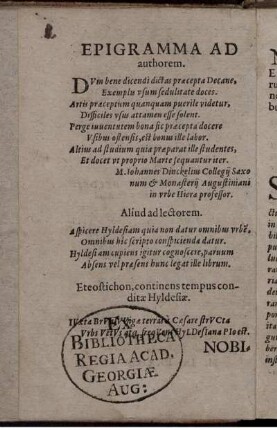 EPIGRAMMA AD
authorem.
DVm bene dicendi dictas præcepta Decane,
Exemplu vsum sedulitate doces.
Artis præceptum quanquam puerile videtur,
Difficiles vsus attamen esse solent.
Perge iuuentutem bona sic præcepta docero
Vsibus ostensis, est bonus ille labor.
Altius ad studium quia præparat ille studentes,
Et docet vt proprio Marte sequantur iter.
M. Iohannes Dinckelius Collegij Saxo
num & Monasterij Augustiniani
in vrbe Hiera professor.
Aliud ad lectorem.
Aspicere Hyldesiam quia non datur omnibus vrbē,
Omnibus hic scripto conspicienda datur.
Hyldesiam cupiens igitur cognoscere, paruum
Absens vel præsens hunc legat ille librum.
Eteostichon, continens tempus con-
ditæ Hyldesiæ.
terrā Cæsare strVCta
Vrbs HyLDesiana
EX
BIBLIOTHECA
REGIA ACAD.
GEORGIÆ
AUG:
NOBI-